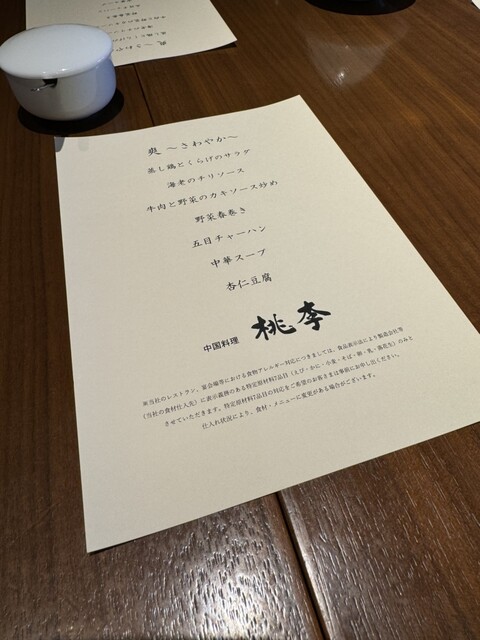 爽 ～さわやか～
蒸し鶏とくらげのサラダ
海老のチリソース
牛肉と野菜のカキソース炒め
野菜春巻き
五目チャーハン
中華スープ
杏仁豆腐
中国料理 桃李
※当社のレストラン、宴会場等における食物アレルギー対応につきましては、食品表示法により製造会社等
（当社の食材仕入先）に表示義務のある特定原材料7品目（えび・かに・小麦・そば・卵・乳・落花生）のみと
させていただきます。特定原材料7品目の対応をご希望のお客さまは事前にお申し出ください。
仕入れ状況により、食材・メニューに変更がある場合がございます。